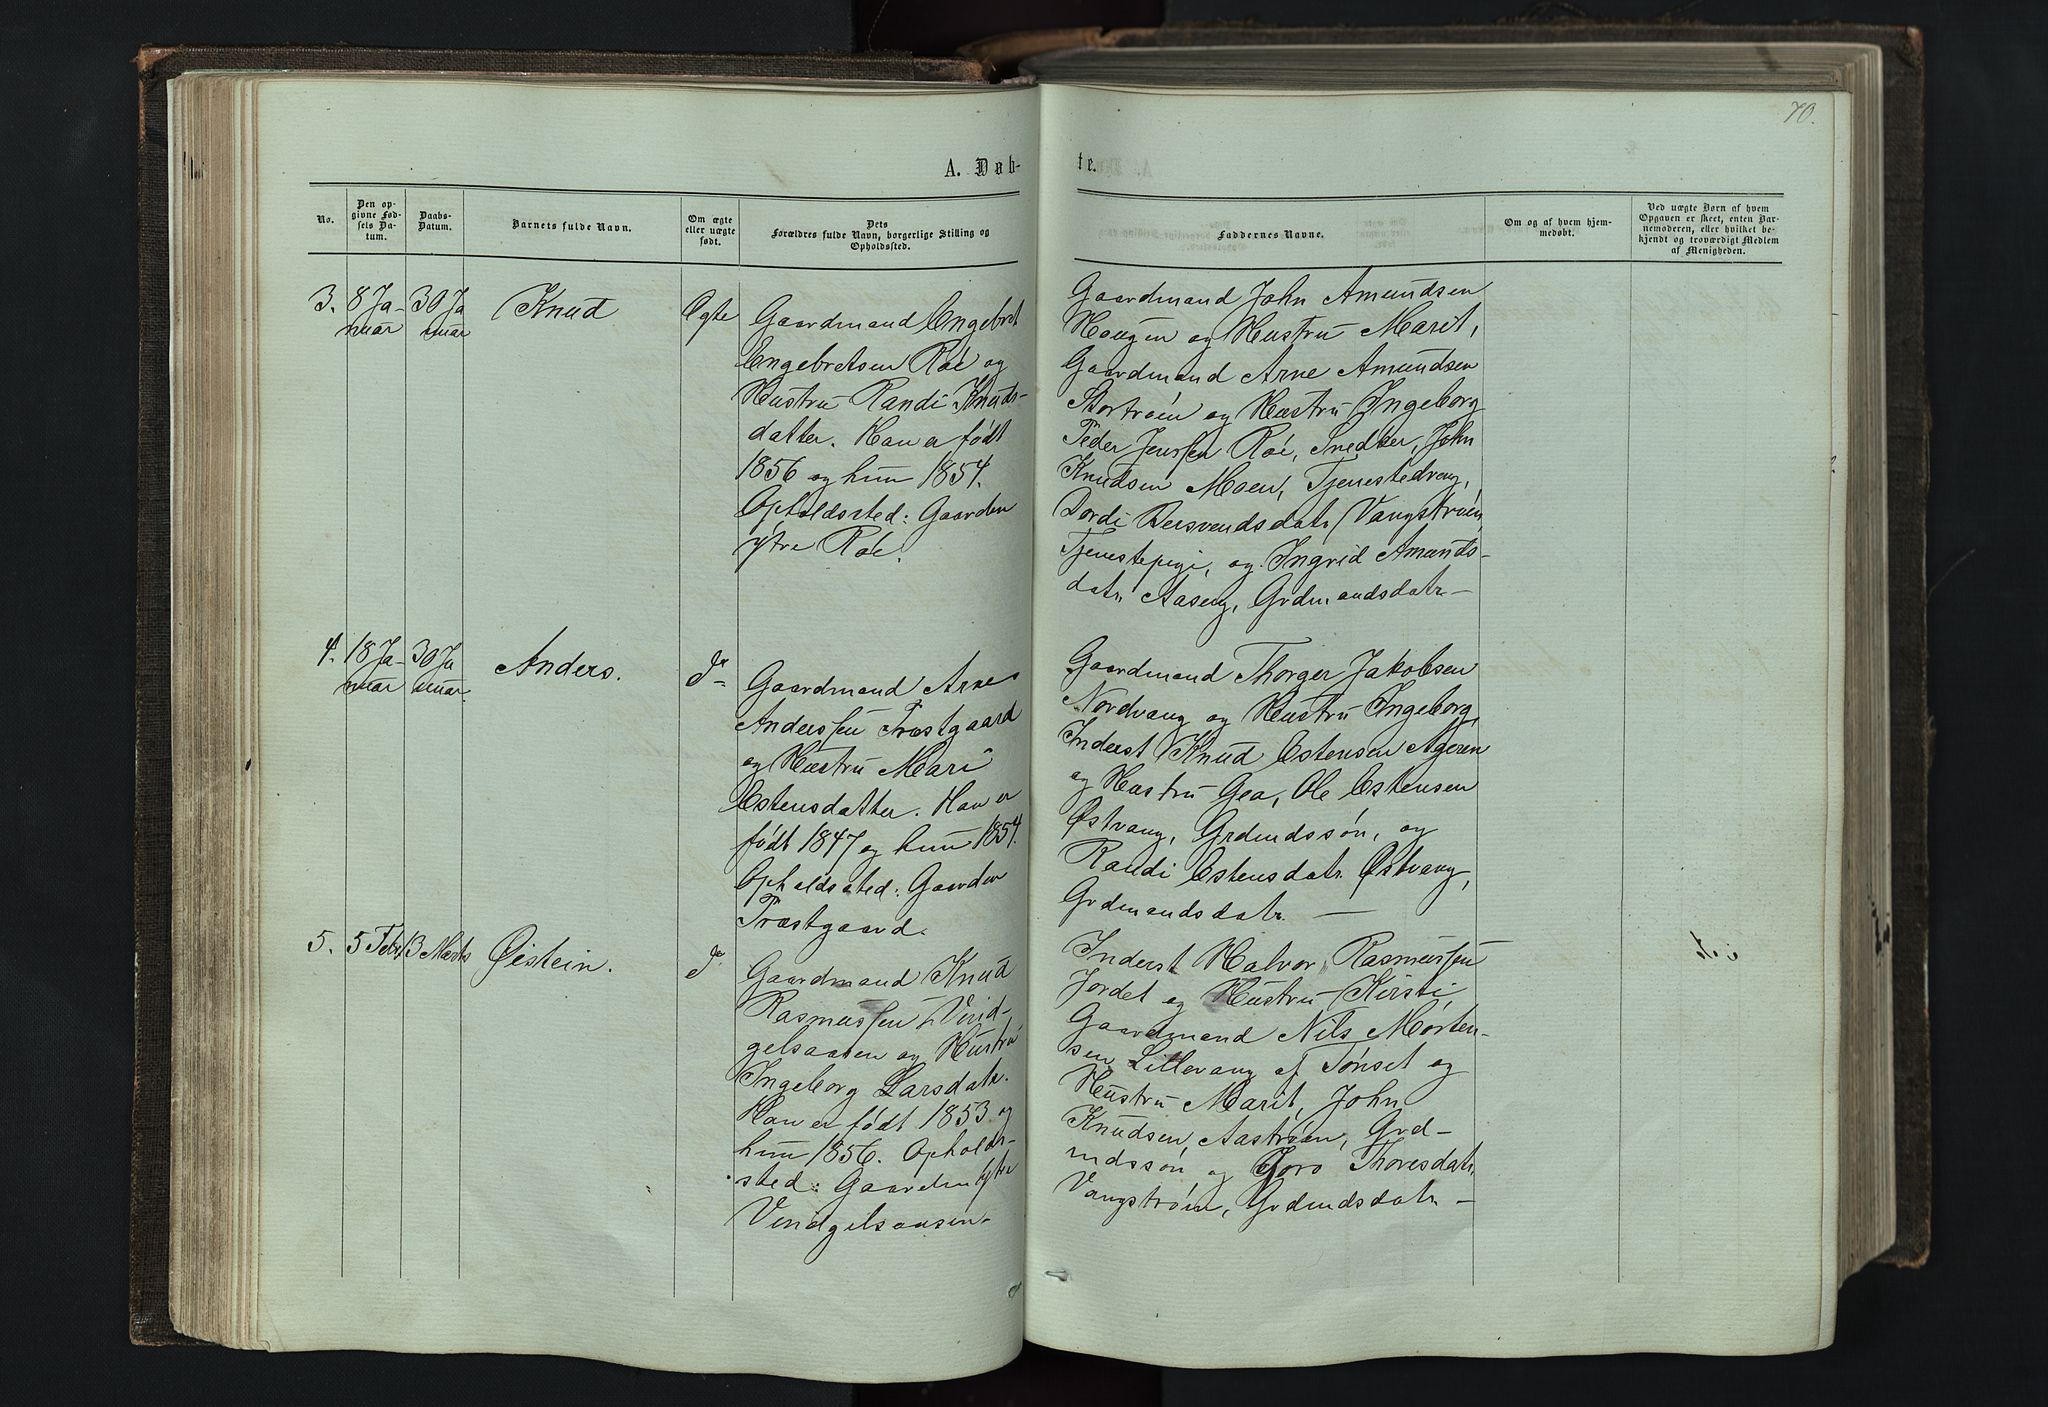 70.
A. Døb-
te.
No.
Den op-
givne Fød-
sels Da-
tum.
Daabs-
Datum.
Barnets fulde Navn.
Om ægte
eller uægte
født.
Dets
Forældres fulde Navn, borgerlige Stilling og
Opholdssted.
Faddernes Navne.
Om og af hvem hjem-
medøbt.
Ved uægte Børn af hvem
Opgaven er skeet, enten Bar-
nemoderen, eller hvilket be-
kjendt og troværdigt Medlem
af Menigheden.
3.
8 Ja-
nuar
30 Ja
nuar
Knud
Ægte
Gaardmand Engebret
Engebretsen Røe og
Hustru Randi Knuds-
datter. Han er født
1856 og hun 1854.
Opholdssted: Gaarden
ytre Røe.
Gaardmand John Amundsen
Haugen og Hustru Marit,
Gaardmand Arne Amundsen
Stortrøen og Hustru Ingeborg
Peder Jenssen Røe, Snedker, John
Knudsen Moen, Tjenestedreng,
Dordi Bersvendsdatr Vangstrøen
Tjenestepige, og Ingrid Amunds-
datr Aaseng, Grdmandsdatr —
4.
18 Ja-
nuar
30 Ja
nuar
Anders.
do
Gaardmand Arne
Anderssen Træstgaard
og Hustru Mari
Estensdatter. Han er
født 1847 og hun 1854.
Opholdssted: Gaarden
Træstgaard.
Gaardmand Thorger Jakobsen
Nordvang og Hustru Ingeborg,
Inderst Knud Estensen Ageren
og Hustru Gea, Ole Estensen
Østvang, Grdmdssøn, og
Randi Estensdatr Østvang,
Grdmandsdatr. —
5.
5 Febr
13 Marts
Øistein.
do
Gaardmand Knud
Rasmussen Vind-
gelsaasen og Hustru
Ingeborg Larsdatr.
Han er født 1853 og
hun 1856. Opholds-
sted: Gaarden ytre
Vindgelsaasen.
Inderst Halvor Rasmussen
Jordet og Hustru Kirsti,
Gaardmand Nils Morten-
sen Lillevang af Tønset og
Hustru Marit, John
Knudsen Aastrøen, Grd-
mdssøn og Goro Thoresdatr
Vangstrøen, Grdmdsdatr —